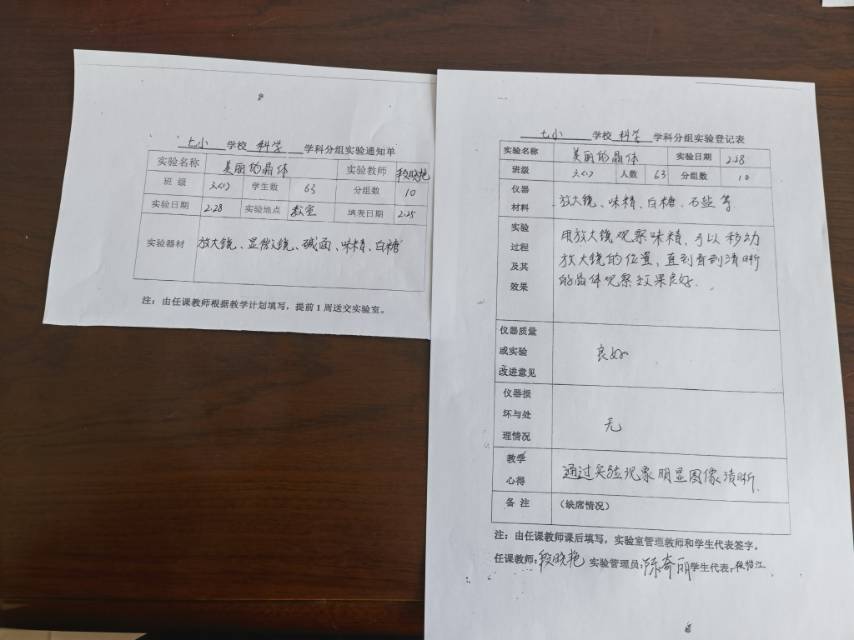 七小 学校 科学 学科分组实验通知单
实验名称 美丽的晶体 实验教师 段晓艳
班 级 六(1) 学生数 63 分组数 10
实验日期 2.28 实验地点 教室 填表日期 2.25
实验器材 放大镜、显微镜、碱面、味精、白糖
注：由任课教师根据教学计划填写，提前1周送交实验室。
七小 学校 科学 学科分组实验登记表
实验名称 美丽的晶体 实验日期 2.28
班级 六(1) 人数 63 分组数 10
仪器
材料
放大镜、味精、白糖、石盐等
实验
过程
及其
效果
用放大镜观察味精，可以移动
放大镜的位置，直到看到清晰
的晶体观察效果良好.
仪器质量
或实验
改进意见
良好
仪器损
坏与处
理情况
无
教学
心得
通过实验现象明显图像清晰.
备 注 （缺席情况）
注：由任课教师课后填写，实验室管理教师和学生代表签字。
任课教师：段晓艳 实验管理员：陈奇丽 学生代表：